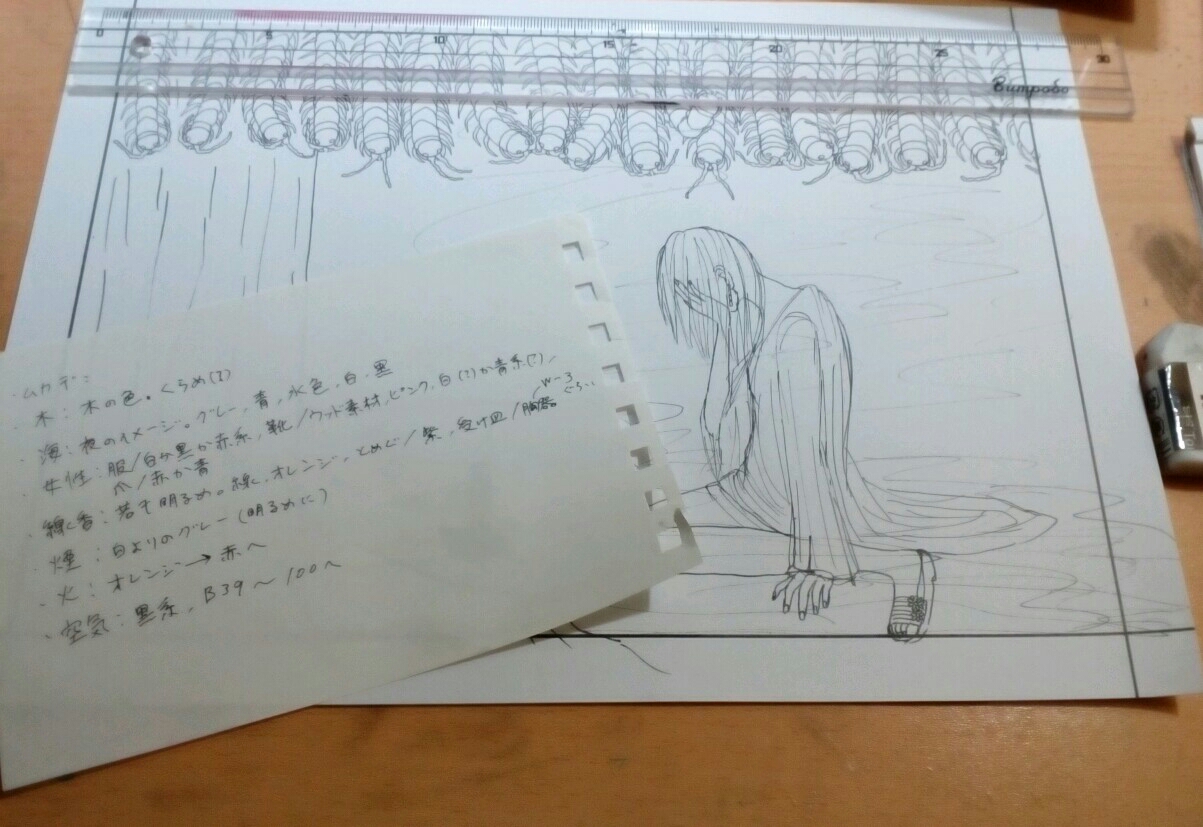 0 5 10 15 20 25 30
・ムカデ:
・木:木の色。くらめ(?)
・海:夜のイメージ。グレー、青、水色、白、黒
・女性:服/白か黒か赤系、靴/ウッド素材、ピンク、白(?)か青系(?)、
爪/赤か青
・線香:若干明るめ。緑、オレンジ、とめぐ/紫、受け皿/陶器
W-3
ぐらい
・煙:白よりのグレー(明るめに)
・火:オレンジ→赤へ
・空気:黒系、B39～100へ